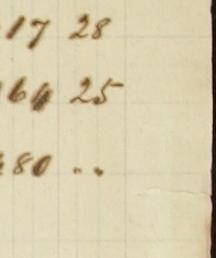 17 28
64 25
80 ..